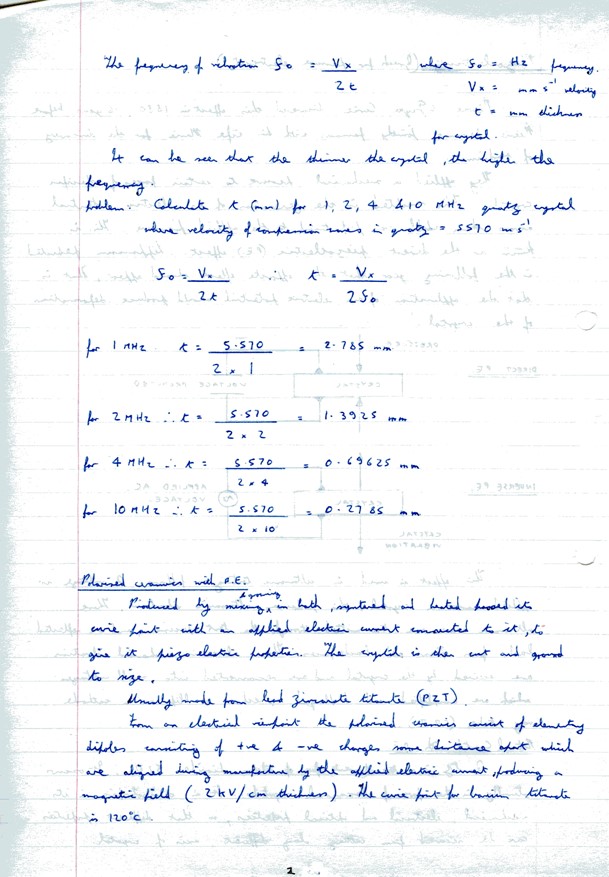 The frequency of vibration fo = Vx / 2t where fo = Hz frequency.
Vx = mm s⁻¹ velocity
t = mm thickness
for crystal.
It can be seen that the thinner the crystal, the higher the
frequency.
problem. Calculate t (mm) for 1, 2, 4 & 10 MHz quartz crystal
where velocity of compression waves in quartz = 5570 m s⁻¹
fo = Vx / 2t ∴ t = Vx / 2fo
for 1 MHz t = 5.570 / 2 x 1 = 2.785 mm
for 2 MHz ∴ t = 5.570 / 2 x 2 = 1.3925 mm
for 4 MHz ∴ t = 5.570 / 2 x 4 = 0.69625 mm
for 10 MHz ∴ t = 5.570 / 2 x 10 = 0.2785 mm
Polarised ceramics with P.E.
Produced by mixing, in bath, syntered and heated passed its
curie point with an applied electric current connected to it, to
give it piezo electric properties. The crystal is then cut and ground
to size.
Usually made from lead zirconate titanate (PZT).
From an electrical viewpoint the polarised ceramics consist of elementary
dipoles consisting of +ve & -ve charges some distance apart which
are aligned during manufacture by the applied electric current, producing a
magnetic field (2kV/cm thickness). The curie point for barium titanate
is 120°C
1